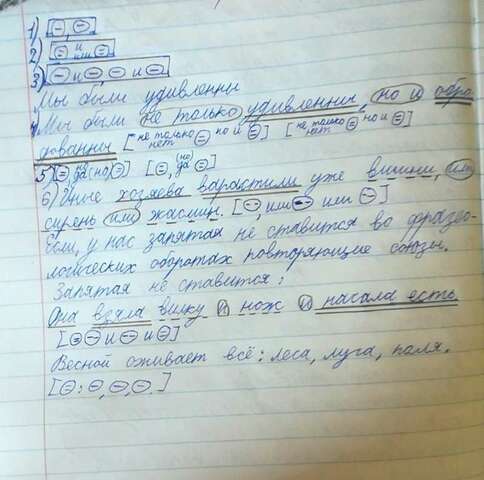 1) [⊖, ⊖.]
2) [⊜ и или ⊜]
3) [⊖ и ⊖, ⊖ и ⊖]
Мы были удивленны
4) Мы были не только удивленны, но и обра-
дованны [не только нет ⊜ но и ⊜] [не только нет ⊜ но и ⊜]
5) [⊜ да(но) ⊜] [⊜, (но) да ⊜]
6) Юные хозяева варастили уже вишни, или
сирень или жасмин. [⊖, или ⊖ или ⊖]
Если, у нас запятая не ставится во фразео-
логических оборотах повторяющие союзы.
Запятая не ставится:
Она взяла вилку и нож и насала есть
[⊜ ⊖ и ⊖ и ⊜]
Весной оживает всё: леса, луга, поля.
[⊖: ⊖, ⊖, ⊖.]